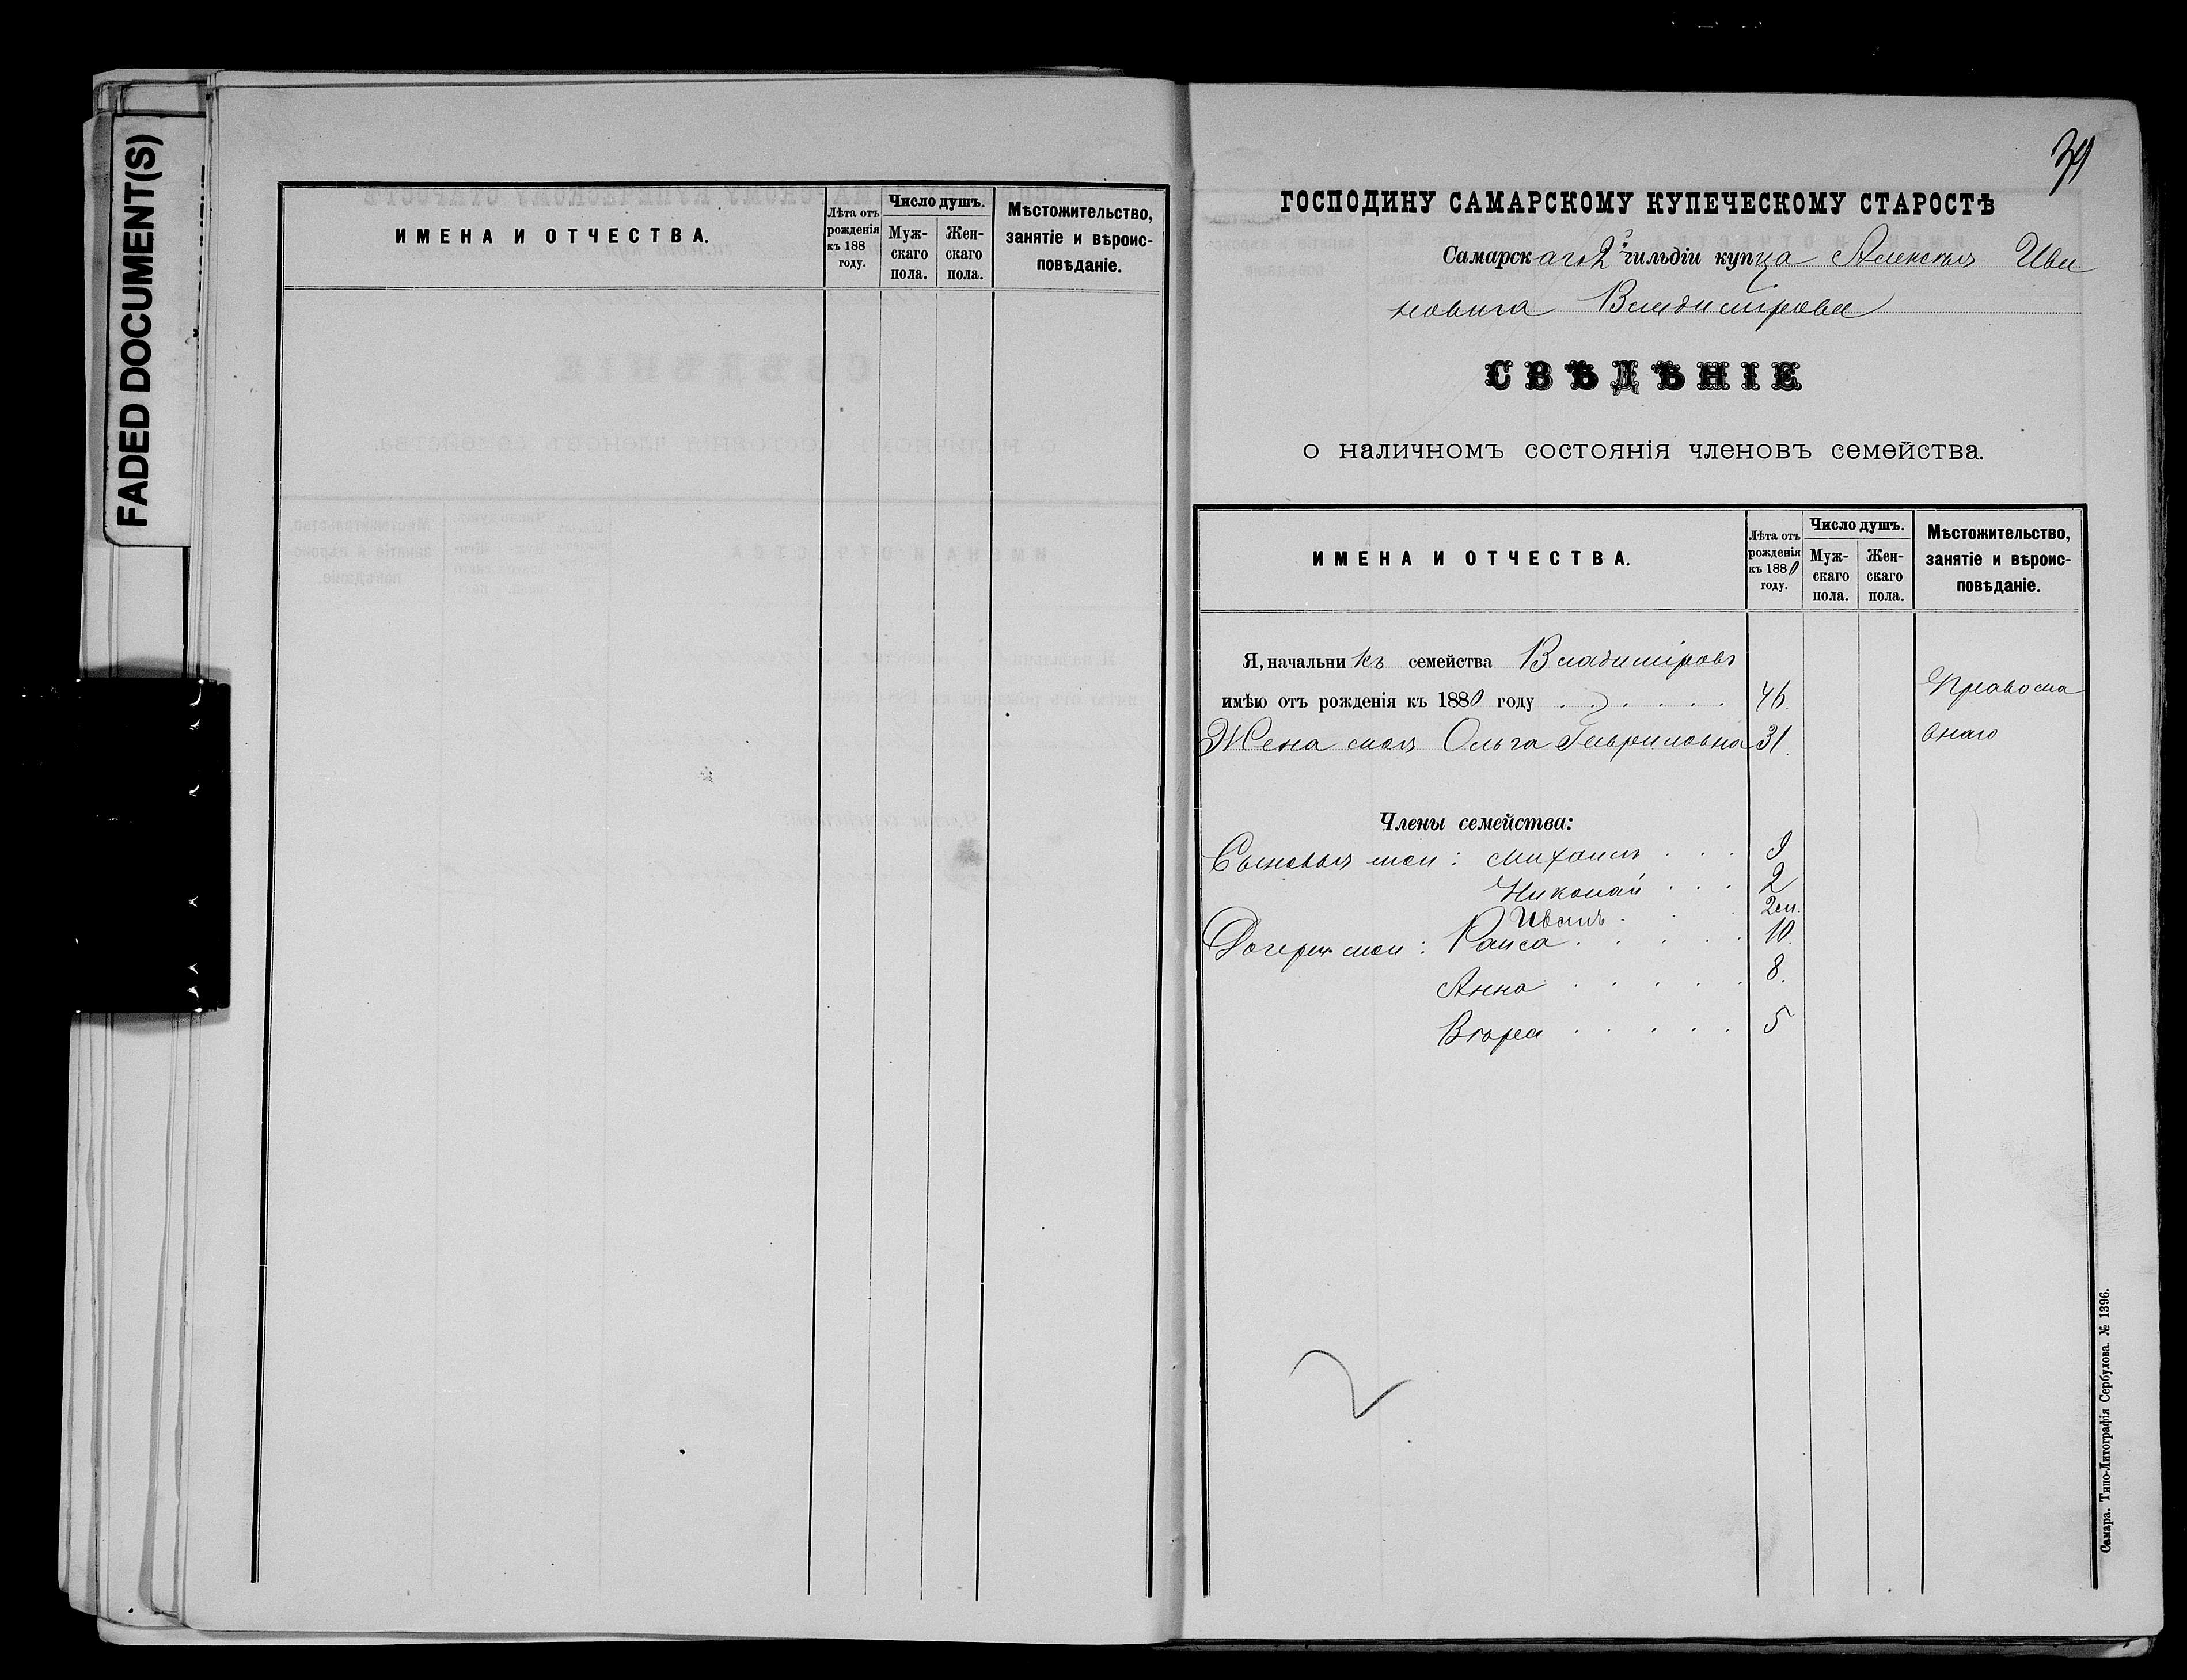 FADED DOCUMENT(S)
ИМЕНА И ОТЧЕСТВА.
Лѣта отъ
рожденія
къ 188
году.
Число душъ.
Муж-
скаго
пола.
Жен-
скаго
пола.
Мѣстожительство,
занятіе и вѣроис-
повѣданіе.
ГОСПОДИНУ САМАРСКОМУ КУПЕЧЕСКОМУ СТАРОСТѢ
Самарскаго 2й гильдіи купца Алексѣя Ива
новича Владимірова
СВѢДѢНІЕ
о наличномъ состоянія членовъ семейства.
ИМЕНА И ОТЧЕСТВА.
Лѣта отъ
рожденія
къ 1880
году.
Число душъ.
Муж-
скаго
пола.
Жен-
скаго
пола.
Мѣстожительство,
занятіе и вѣроис-
повѣданіе.
Я, начальникъ семейства Владиміровъ
имѣю отъ рожденія къ 1880 году . . . . . . 46. Правосла
Жена моя Ольга Гавриловна 31. внаго
Члены семейства:
Сыновья мои: Михаилъ . . . 9
Николай . . . 2
Иванъ . . . 2 м.
Дочери мои: Раиса . . . . . 10.
Анна . . . . . 8.
Вѣра . . . . . 5
2
Самара. Типо-Литографія Сербулова. № 1396.